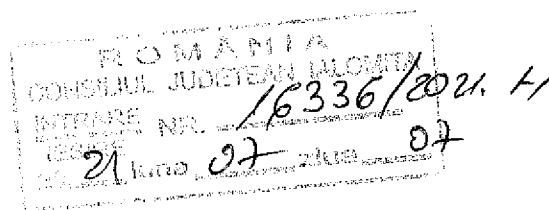 ROMÂNIA
CONSILIUL JUDEȚEAN IALOMIȚA
INTRARE NR. 16336/2021. H
IEȘIRE
21 luna 07 ziua 07